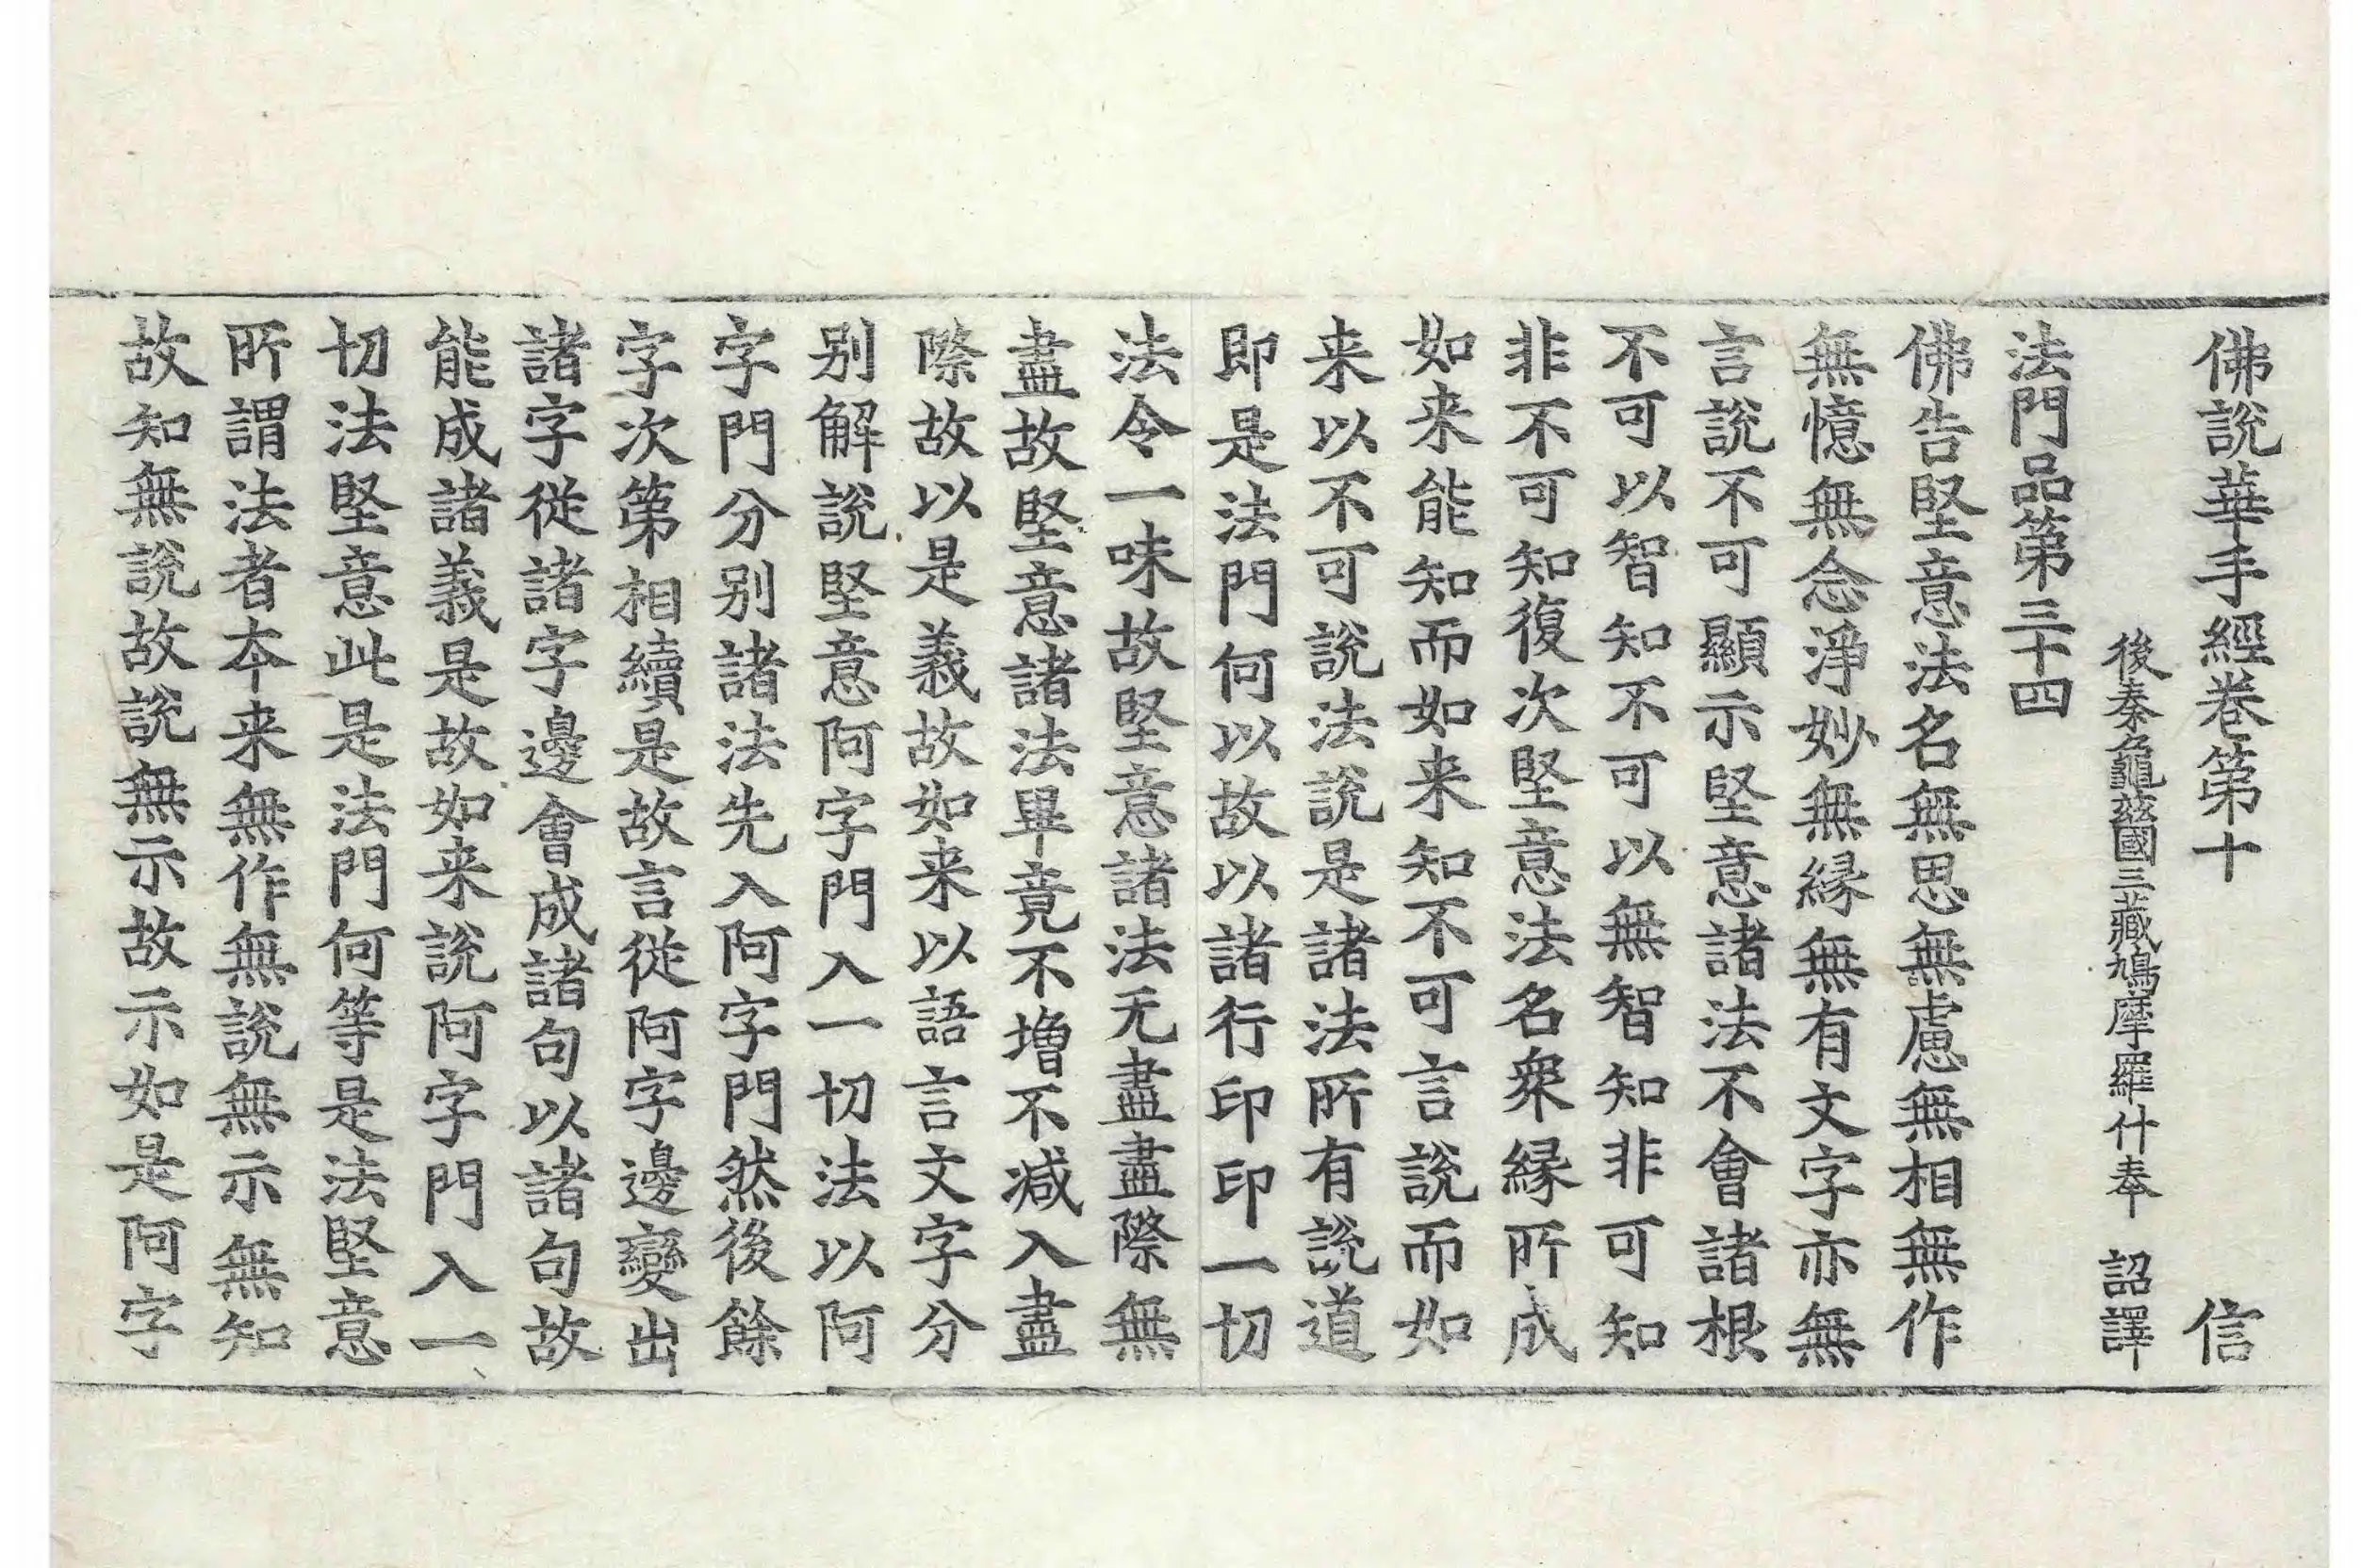 佛說華手經卷第十　信
後秦龜兹國三藏鳩摩羅什奉　詔譯
法門品第三十四
佛告堅意法名無思無慮無相無作
無憶無念淨妙無緣無有文字亦無
言說不可顯示堅意諸法不會諸根
不可以智知不可以無智知非可知
非不可知復次堅意法名衆緣所成
如来能知而如来知不可言說而如
来以不可說法說是諸法所有說道
即是法門何以故以諸行印印一切
法令一味故堅意諸法无盡盡際無
盡故堅意諸法畢竟不增不減入盡
際故以是義故如来以語言文字分
別解說堅意阿字門入一切法以阿
字門分別諸法先入阿字門然後餘
字次第相續是故言從阿字邊變出
諸字從諸字邊會成諸句以諸句故
能成諸義是故如来說阿字門入一
切法堅意此是法門何等是法堅意
所謂法者夲来無作無說無示無知
故知無說故說無示故示如是阿字